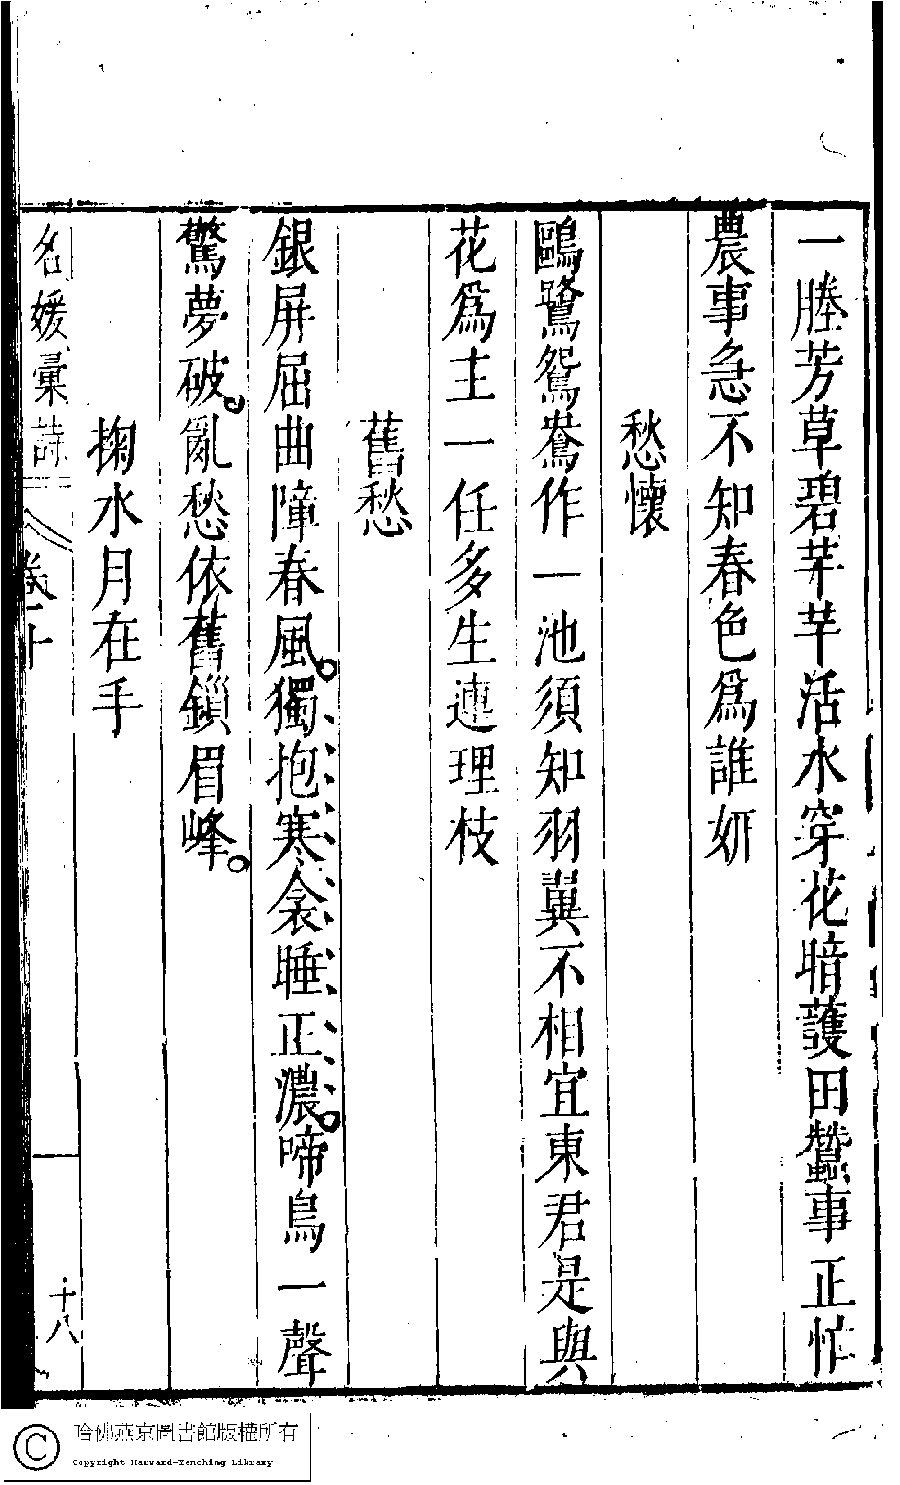 一塍芳草碧芊芊活水穿花暗護田蠶事正忙
農事急不知春色爲誰妍
愁懷
鷗鷺鴛鴦作一池須知羽翼不相宜東君是與
花爲主一任多生連理枝
舊愁
銀屏屈曲障春風獨抱寒衾睡正濃啼鳥一聲
驚夢破亂愁依舊鎖眉峰
掬水月在手
名媛彙詩 卷十 十八
哈佛燕京圖書館版權所有
Copyright Harvard-Yenching Library